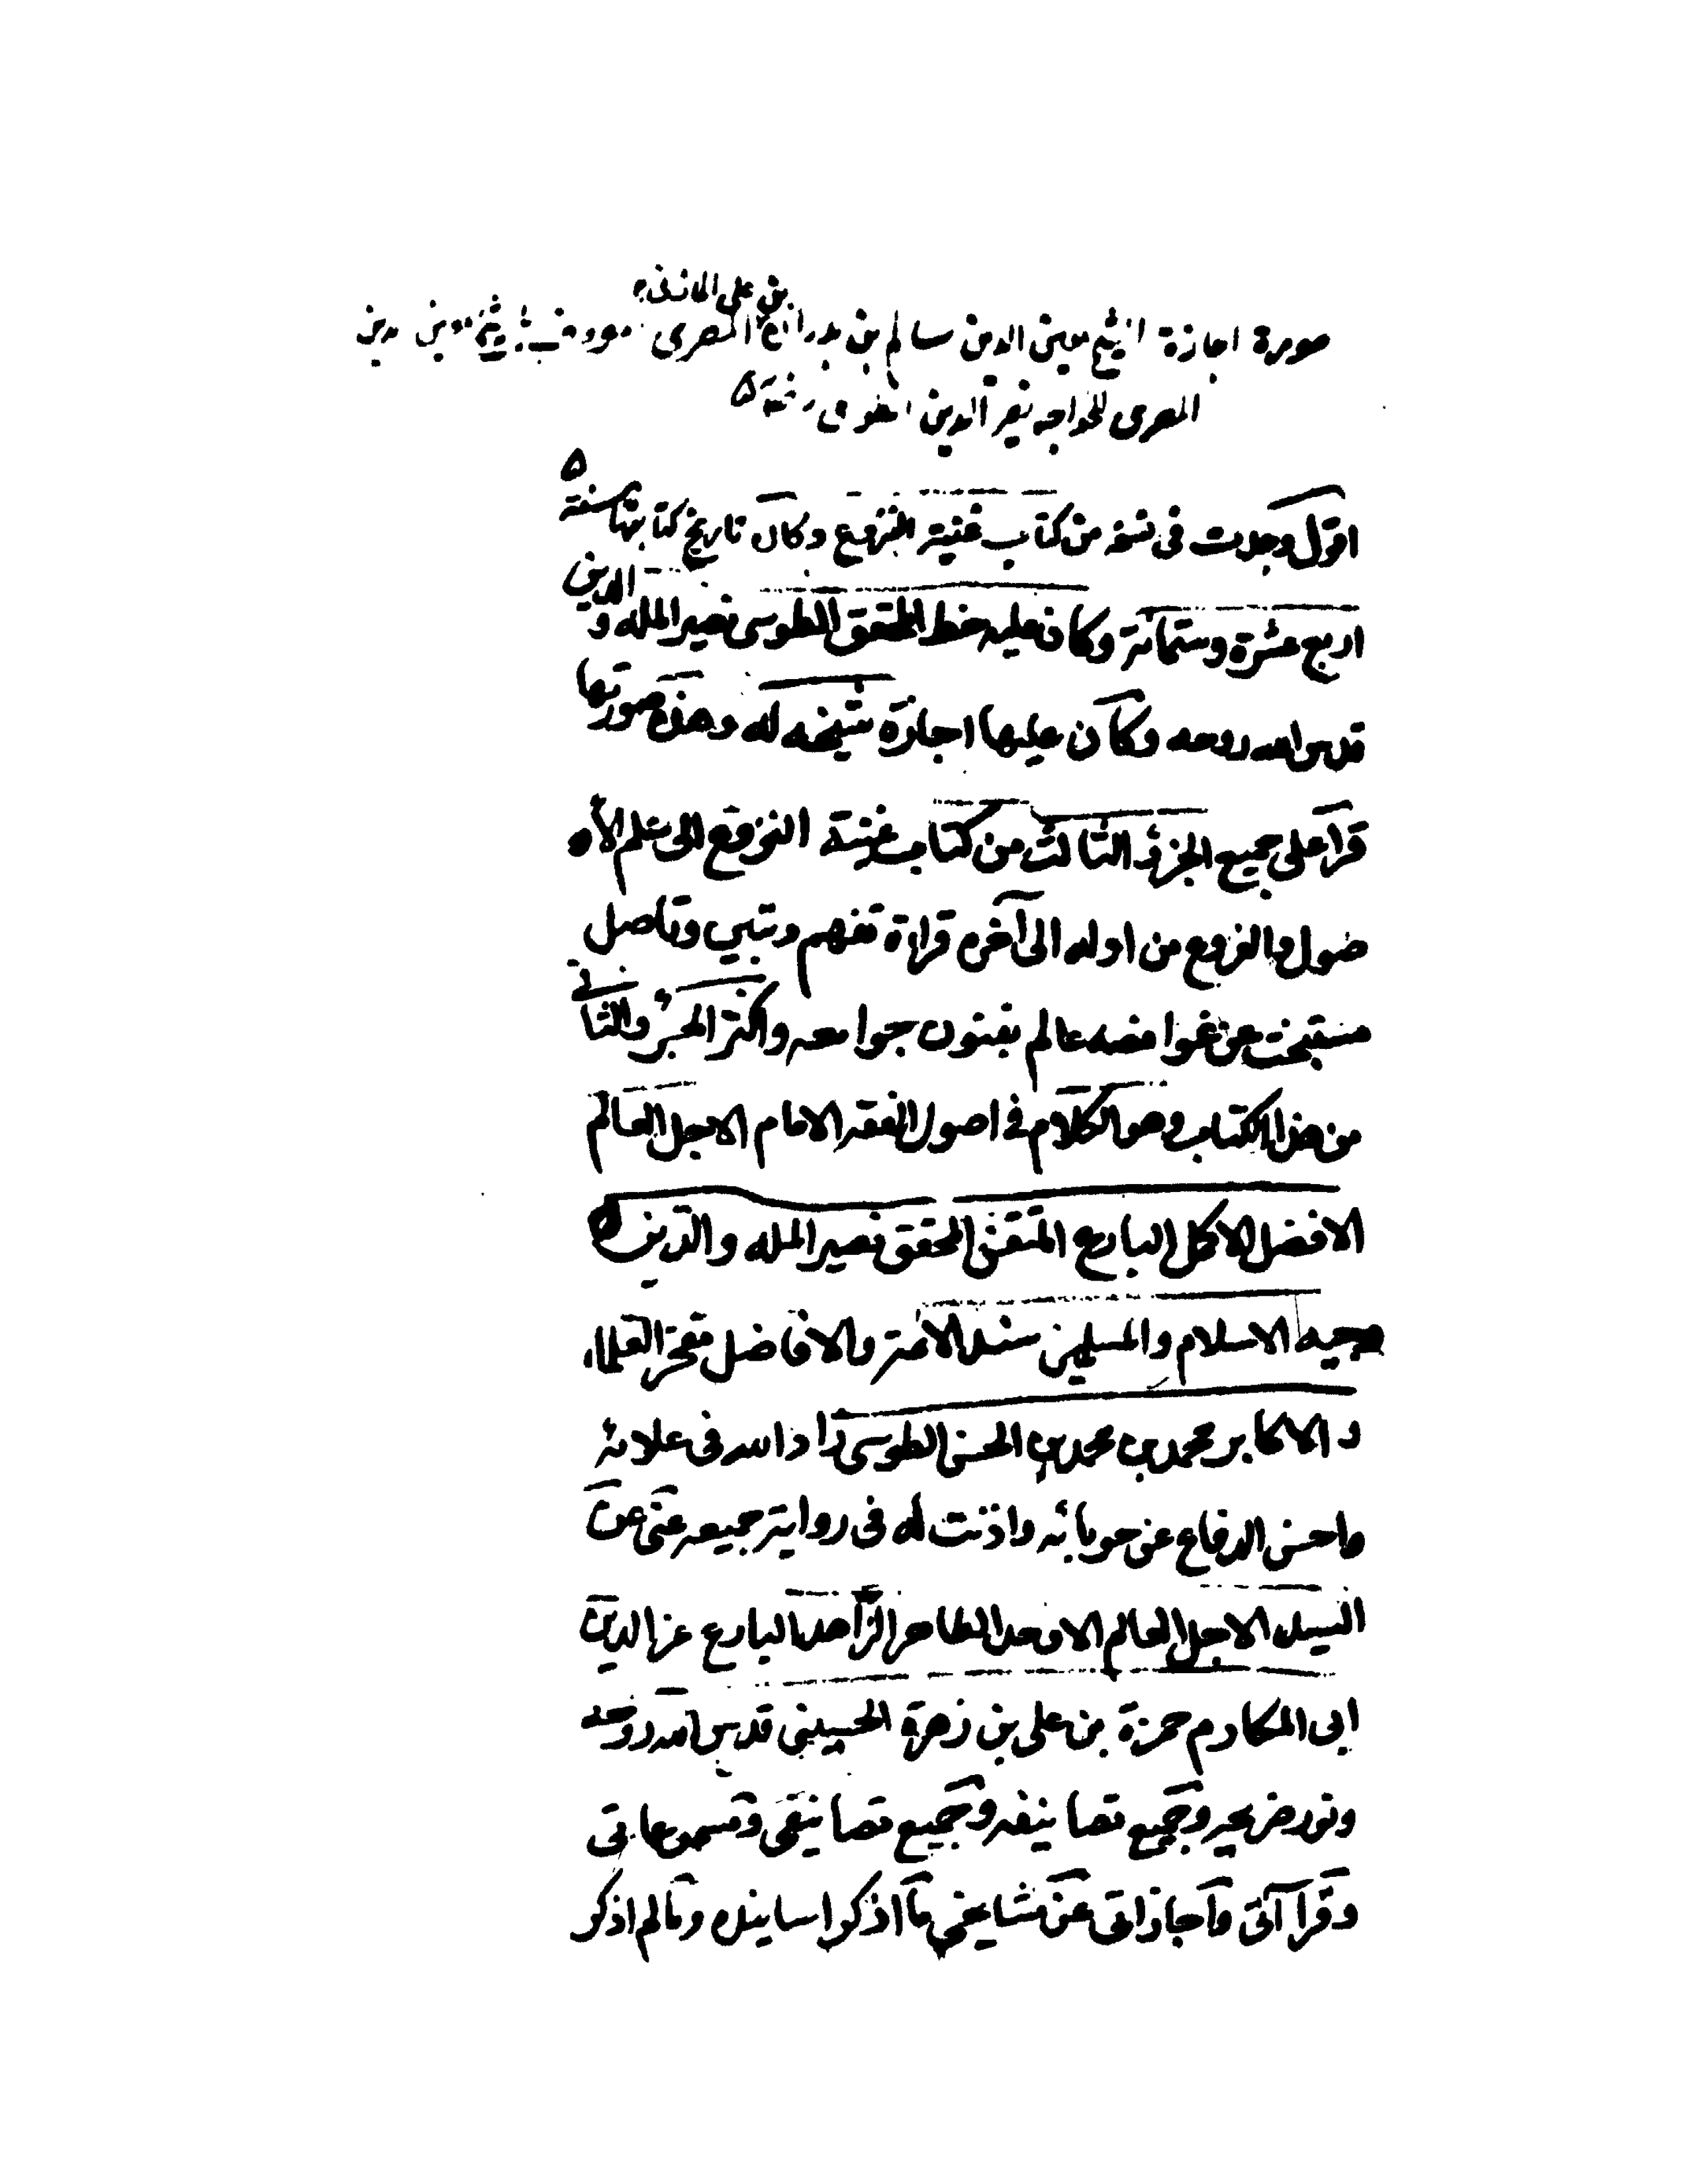 بن علي المازني
صورة اجازة الشيخ معين الدين سالم بن بدران المصري
المصرى للخواجه نصير الدين
اقول وجدت فى نسخه من كتاب غنية النزوع وكان تاريخ كتابتها سنة
اربع عشرة وستمائة وكان عليه خط المحقق الطوسى نصير المله و الدين
قدس الله روحه وكان عليها اجازة شيخه له وهذه صورتها
قرأ على جميع الجزء الثالث من كتاب غنية النزوع الى علم الأ
صول والفروع من اوله الى آخره قراءة تفهم وتبين وتامل
مستبحث عن غوامضه عالم بفنون جوامعه واكثر الجزء الثانى
من هذا الكتاب وهو الكلام فى اصول الفقه الامام الاجل العالم
الافضل الاكمل البارع المتقن المحقق نصير المله والدين
وجيه الاسلام والمسلمين سند الائمة والافاضل مفخر العلماء
و الاكابر محمد بن محمد بن الحسن الطوسى زاد الله فى علائه
واحسن الدفاع عن حوبائه واذنت له فى رواية جميعه عنى عن
السيد الاجل العالم الاوحد الطاهر الزاهد البارع عز الدين
ابى المكارم حمزة بن على بن زهرة الحسينى قدس الله روحه
ونور ضريحه وجميع تصانيفه وجميع تصانيفى ومسموعاتى
وقراآتى واجازاتى عن مشايخى ما اذكر اسانيده وما لم اذكر